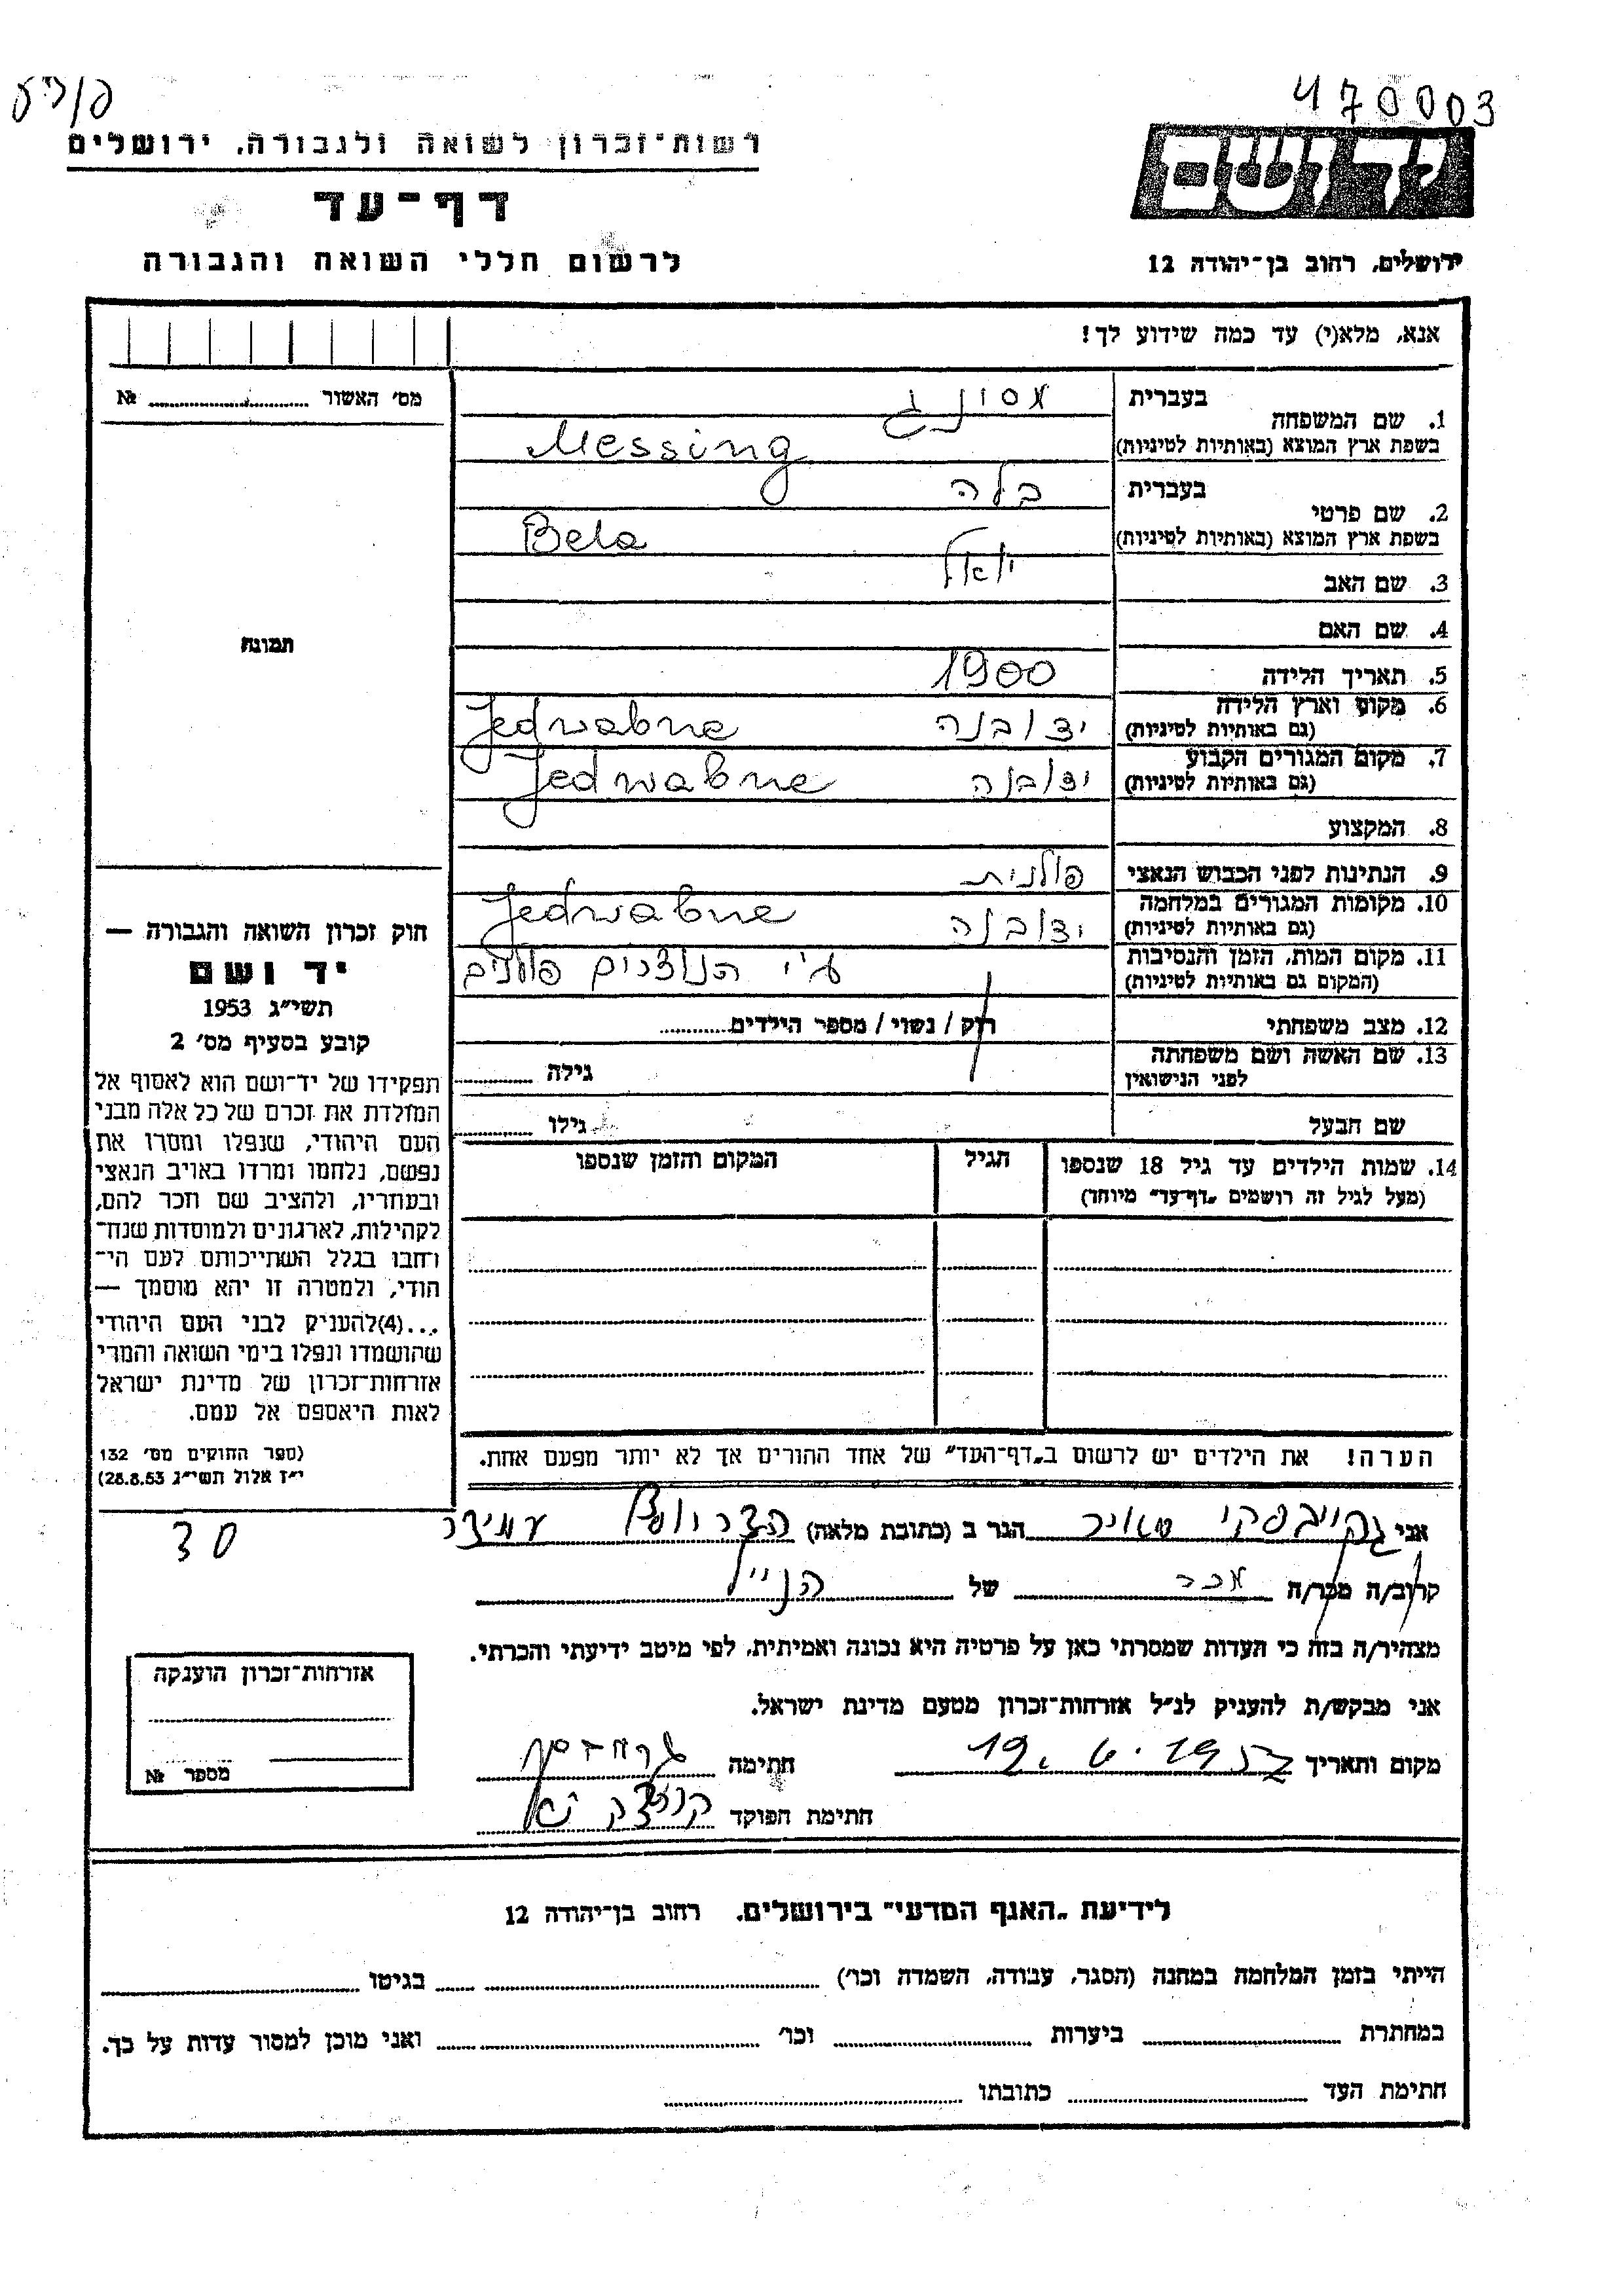 470003
רשות־זכרון לשואה ולגבורה. ירושלים
דף־עד
לרשום חללי השואה והגבורה
ירושלים, רחוב בן־יהודה 12
אנא, מלא(י) עד כמה שידוע לך!
מס׳ האשור № ........
תמונה
1. שם המשפחה
בעברית מסונג
בשפת ארץ המוצא (באותיות לטיניות) Messing
2. שם פרטי
בעברית בלה
בשפת ארץ המוצא (באותיות לטיניות) Bela
3. שם האב יואל
4. שם האם
5. תאריך הלידה 1900
6. מקום וארץ הלידה (גם באותיות לטיניות) יצובנה Jedwabne
7. מקום המגורים הקבוע (גם באותיות לטיניות) יצובנה Jedwabne
8. המקצוע
9. הנתינות לפני הכבוש הנאצי פולנית
10. מקומות המגורים במלחמה (גם באותיות לטיניות) יצובנה Jedwabne
11. מקום המות, הזמן והנסיבות (המקום גם באותיות לטיניות) ע״י הנוצרים פולנים
12. מצב משפחתי רוק / נשוי / מספר הילדים........
13. שם האשה ושם משפחתה לפני הנישואין גילה ........
שם הבעל גילו ........
14. שמות הילדים עד גיל 18 שנספו (מעל לגיל זה רושמים „דף־עד״ מיוחד)
הגיל
המקום והזמן שנספו
הערה! את הילדים יש לרשום ב„דף־העד״ של אחד ההורים אך לא יותר מפעם אחת.
חוק זכרון השואה והגבורה —
יד ושם
תשי״ג 1953
קובע בסעיף מס׳ 2
תפקידו של יד־ושם הוא לאסוף אל
המולדת את זכרם של כל אלה מבני
העם היהודי, שנפלו ומסרו את
נפשם, נלחמו ומרדו באויב הנאצי
ובעוזריו, ולהציב שם וזכר להם,
לקהילות, לארגונים ולמוסדות שנח־
רבו בגלל השתייכותם לעם הי־
הודי, ולמטרה זו יהא מוסמך —
...(4)להעניק לבני העם היהודי
שהושמדו ונפלו בימי השואה והמרי
אזרחות־זכרון של מדינת ישראל
לאות היאספם אל עמם.
(ספר החוקים מס׳ 132
י״ז אלול תשי״ג 28.8.53)
30
אני הגר ב (כתובת מלאה) עמידר
קרוב/ה מכר/ה מכר של הנ״ל
מצהיר/ה בזה כי העדות שמסרתי כאן על פרטיה היא נכונה ואמיתית, לפי מיטב ידיעתי והכרתי.
אני מבקש/ת להעניק לנ״ל אזרחות־זכרון מטעם מדינת ישראל.
מקום ותאריך 19.6.1957 חתימה
חתימת הפוקד
אזרחות־זכרון הוענקה
מספר №
לידיעת „האגף המדעי״ בירושלים. רחוב בן־יהודה 12
הייתי בזמן המלחמה במחנה (הסגר, עבודה, השמדה וכו׳) ........ בגיטו ........
במחתרת ........ ביערות ........ וכו׳ ........ ואני מוכן למסור עדות על כך.
חתימת העד ........ כתובתו ........